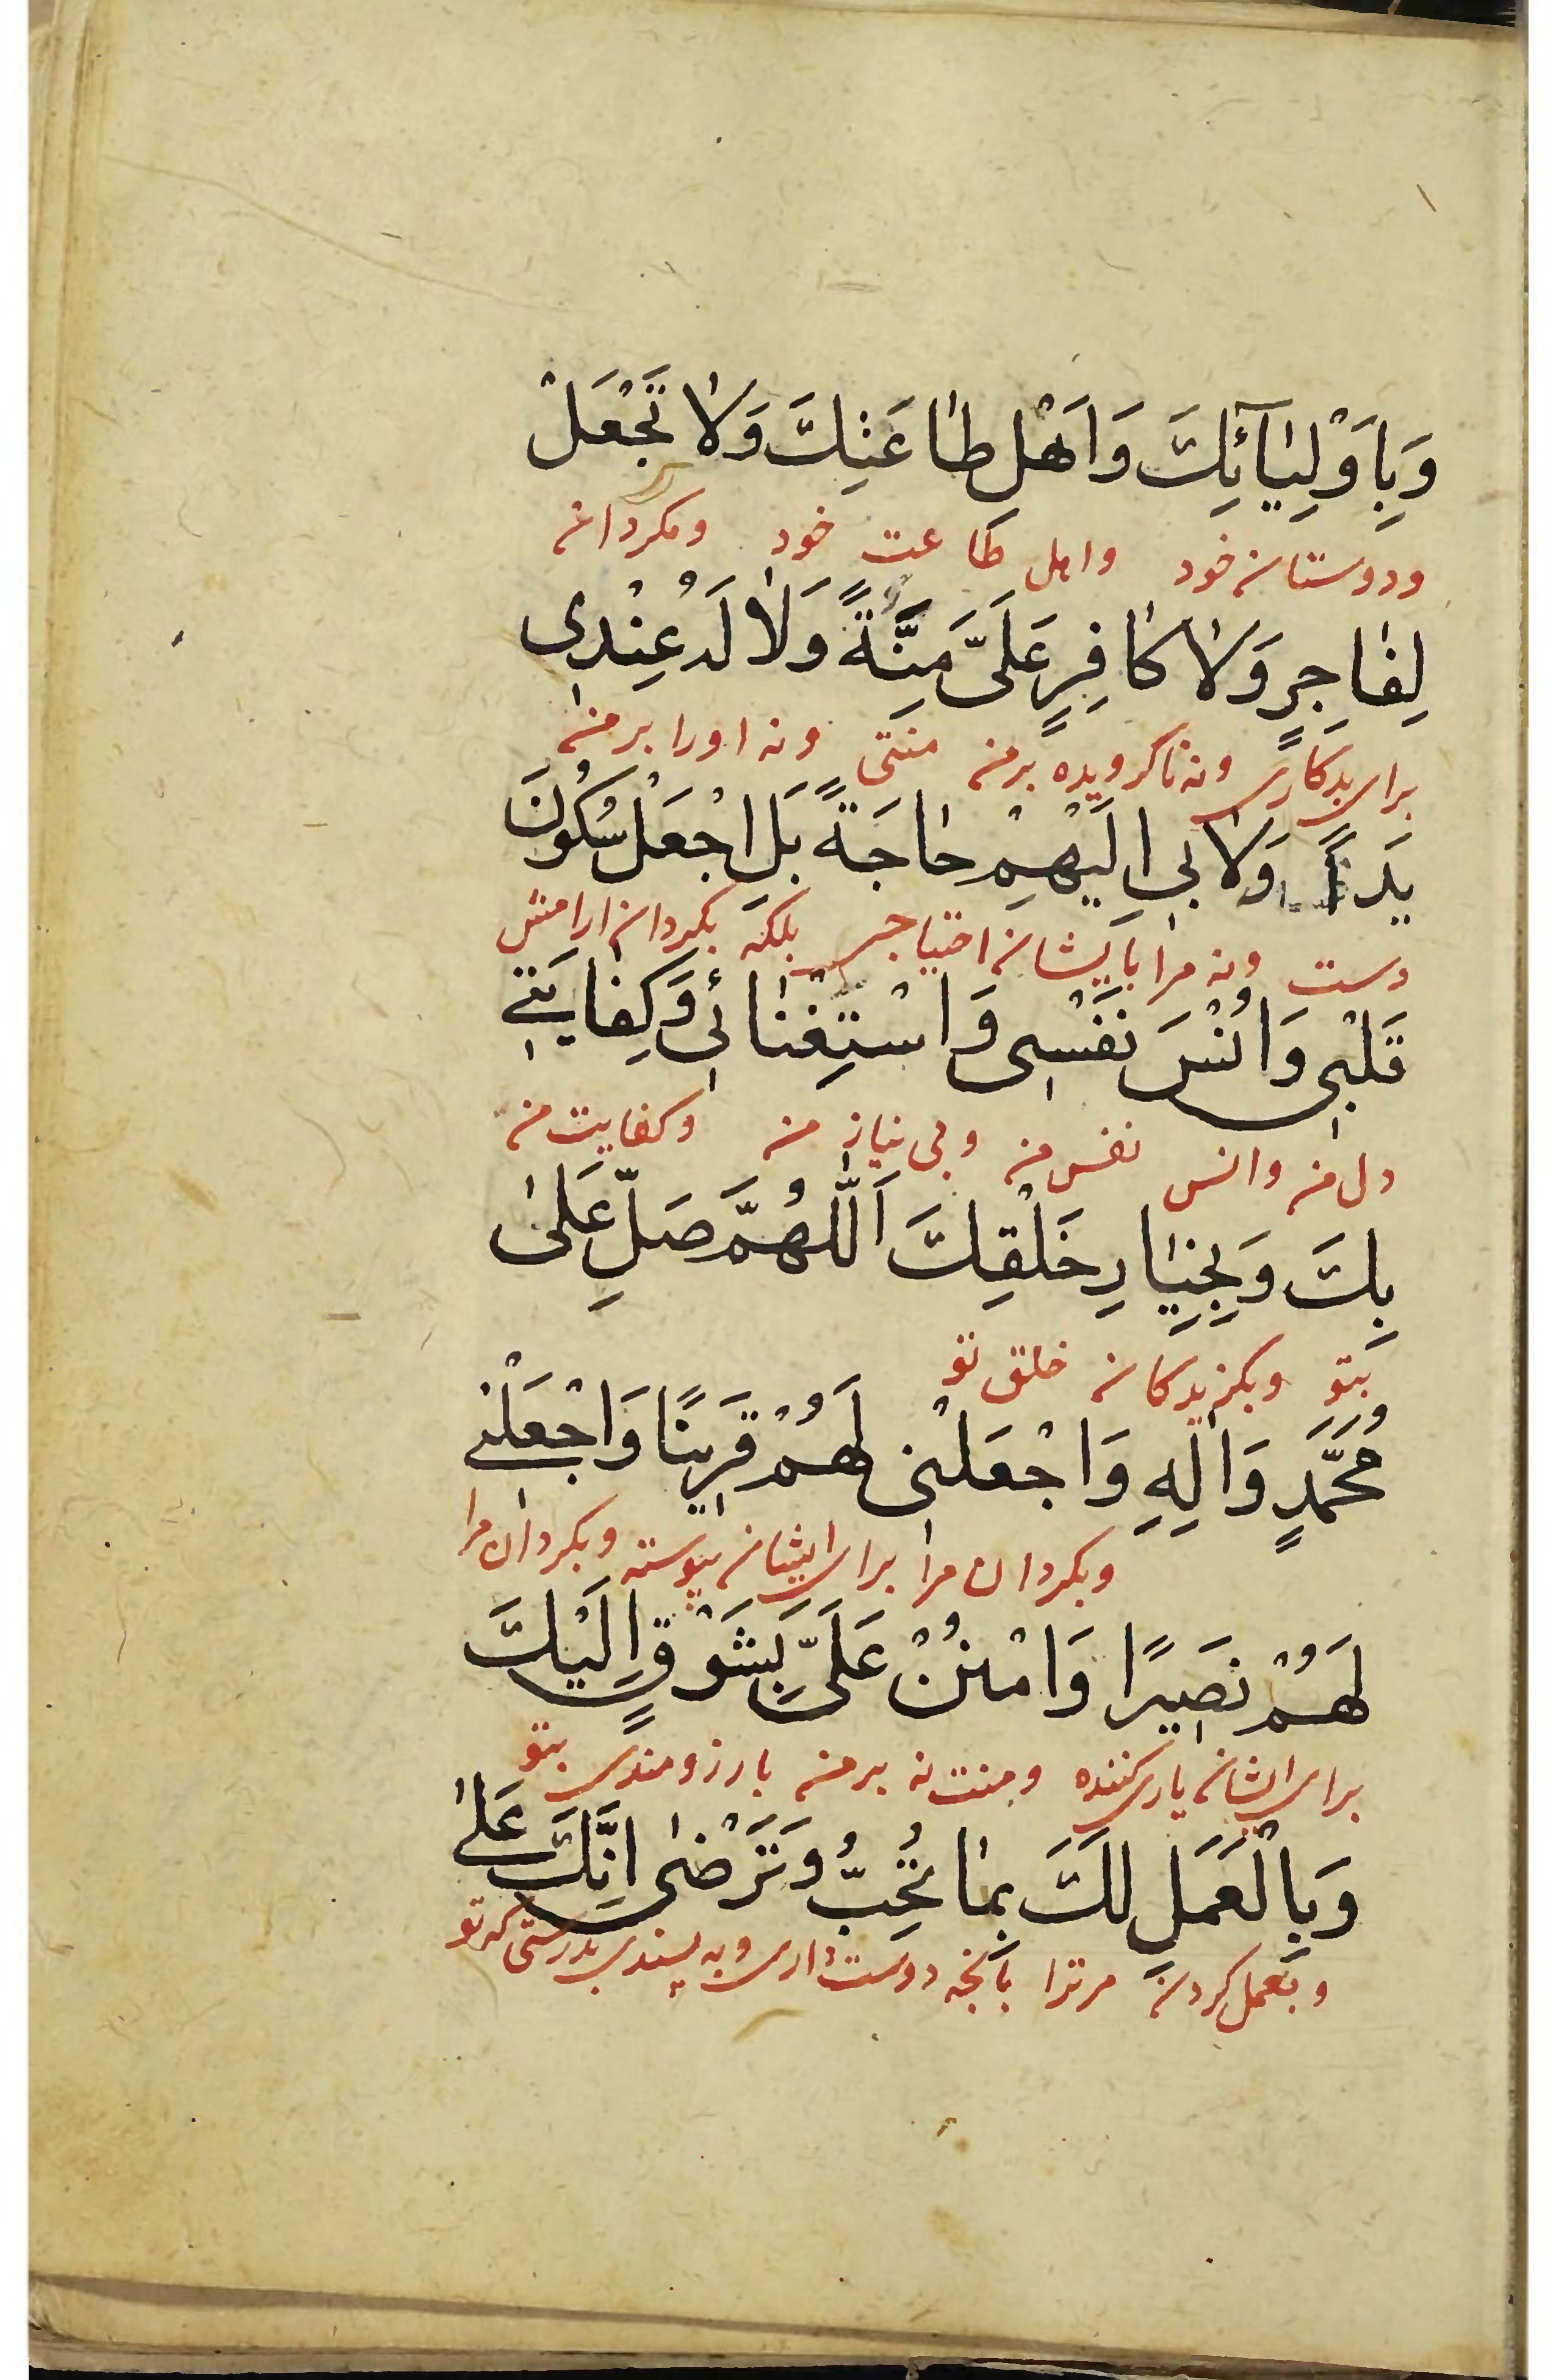 وَبِاَوْلِيٰآئِكَ وَاَهْلِ طٰاعَتِكَ وَلٰا تَجْعَلْ
ودوستان خود واهل طاعت خود ومكردان
لِفٰاجِرٍ وَلٰا كٰافِرٍ عَلَىَّ مِنَّةً وَلٰا لَهُ عِنْدِى
براى بدكارى ونه ناكرويده برمن منتى ونه اورا برمن
يَداً وَلٰا بى اِلَيْهِمْ حٰاجَةً بَلِ اجْعَلْ سُكُونَ
دست ونه مرا بايشان احتياجى بلكه بكردان ارامش
قَلْبى وَاُنْسَ نَفْسى وَاسْتِغْنٰائى وَكِفٰايَتى
دل من وانس نفس من وبى نيازى من وكفايت من
بِكَ وَبِخِيٰارِ خَلْقِكَ اَللّٰهُمَّ صَلِّ عَلىٰ
بتو وبكزيدكان خلق تو
مُحَمَّدٍ وَاٰلِهِ وَاجْعَلْنى لَهُمْ قَرينًا وَاجْعَلْنى
وبكردان مرا براى ايشان پيوسته وبكردان مرا
لَهُمْ نَصيرًا وَامْنُنْ عَلَىَّ بِشَوْقٍ اِلَيْكَ
براى ايشان يارى كننده ومنت نه برمن بارزومندى بتو
وَبِالْعَمَلِ لَكَ بِمٰا تُحِبُّ وَتَرْضىٰ اِنَّكَ عَلىٰ
وبعمل كردن مرترا بآنچه دوست دارى وبه پسندى بدرستى كه تو